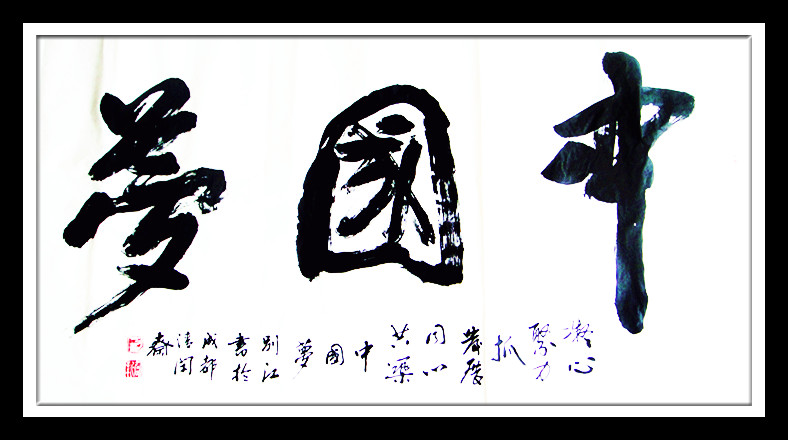 中國夢
凝心
聚力
抓
發展
同心
共築
中
國
夢
別江
書於
成都
清
齋